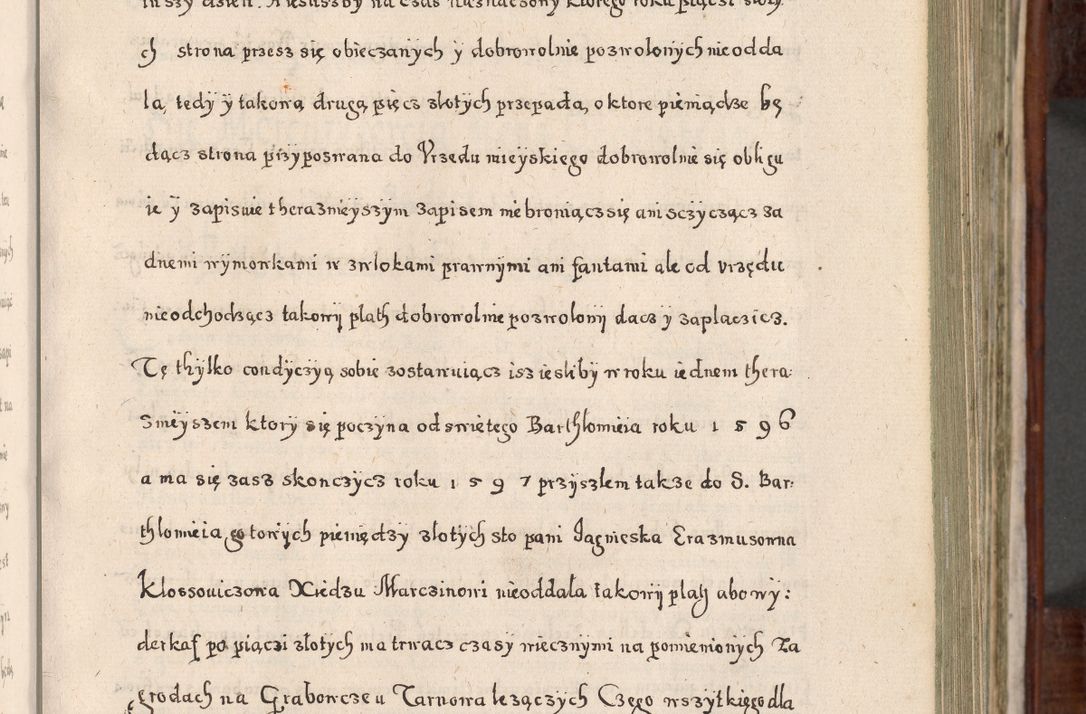 in szy dzien. A iesliszby na czas naznaczony ktorego roku piączi złoty
ch strona przesz się obieczanych y dobrowolnie pozwolonych nieodda
la, tedy y takową drugą pięcz złotych przepada, o ktore pieniądze bę
dącz strona przypozwana do Vrzędu mieyskiego dobrowolnie się obligu
ie y zapisuie theraznieyszym zapisem nie broniącz się ani sczyczącz za
dnemi wymowkami w zwlokami prawnymi ani fantami ale od vrzędu
nieodchodzącz takowy plath dobrowolnie pozwolony dacz y zaplaczicz.
Tę thylko condyczyą sobie zostawuiącz isz iesliby w roku iednem thera:
zmeyszem ktory się poczyna od swiętego Barthlomieia roku 1 5 9 6
a ma się zasz skonczycz roku 1 5 9 7 przyszlem takze do S. Bar:
thlomieia gotowych pieniędzy złotych sto pani Jagnieska Erazmusowna
Klossowiczowa Xiedzu Marczinowi nieoddala takowy plath abo wy:
derkaf po piączi złotych ma trwacz czasy wiecznymi na pomienionych Za
grodach na Grabowcze u Tarnowa lezączych Czego wszytkiego dla